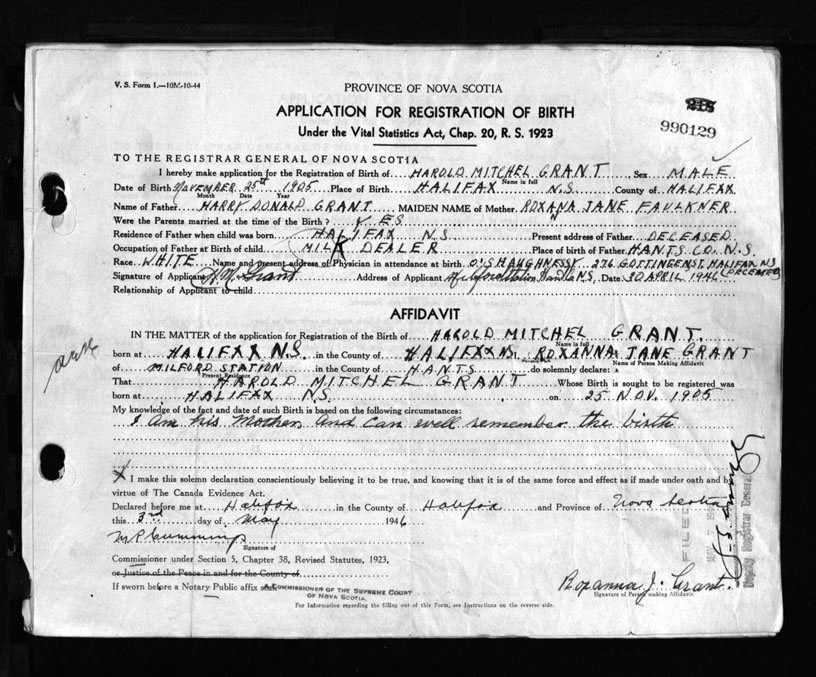 V. S. Form 1.—10M-10-44
PROVINCE OF NOVA SCOTIA
APPLICATION FOR REGISTRATION OF BIRTH
Under the Vital Statistics Act, Chap. 20, R. S. 1923
990129
TO THE REGISTRAR GENERAL OF NOVA SCOTIA
I hereby make application for the Registration of Birth of HAROLD MITCHEL GRANT Sex MALE
Name in full
Date of Birth NOVEMBER 25th 1905 Place of Birth HALIFAX N.S. County of HALIFAX
Month Date Year
Name of Father HARRY DONALD GRANT MAIDEN NAME of Mother ROXANA JANE FAULKNER
Were the Parents married at the time of the Birth? YES
Residence of Father when child was born HALIFAX N.S. Present address of Father DECEASED
Occupation of Father at Birth of child MILK DEALER Place of birth of Father HANTS CO. N.S.
Race WHITE Name and present address of Physician in attendance at birth O'SHAUGHNESSY 276 GOTTINGEN ST. HALIFAX NS (DECEASED)
Signature of Applicant H. M. Grant Address of Applicant Milford Station Hants N.S. Date 30 APRIL 1946
Relationship of Applicant to child
AFFIDAVIT
IN THE MATTER of the application for Registration of the Birth of HAROLD MITCHEL GRANT
Name in full
born at HALIFAX N.S. in the County of HALIFAX NS I, ROXANNA JANE GRANT
Name of Person Making Affidavit
of MILFORD STATION in the County of HANTS do solemnly declare:
Present Residence
That HAROLD MITCHEL GRANT Whose Birth is sought to be registered was
born at HALIFAX NS. on 25 NOV. 1905
My knowledge of the fact and date of such Birth is based on the following circumstances:
I am his Mother and can well remember the birth
X I make this solemn declaration conscientiously believing it to be true, and knowing that it is of the same force and effect as if made under oath and by
virtue of The Canada Evidence Act.
Declared before me at Halifax in the County of Halifax and Province of Nova Scotia
this 3rd day of May 1946
Signature of
Commissioner under Section 5, Chapter 38, Revised Statutes, 1923,
or Justice of the Peace in and for the County of
If sworn before a Notary Public affix seal
A COMMISSIONER OF THE SUPREME COURT
OF NOVA SCOTIA.
Roxanna J. Grant
Signature of Person making Affidavit
For Information regarding the filling out of this Form, see Instructions on the reverse side.
FILED
Deputy Registrar General